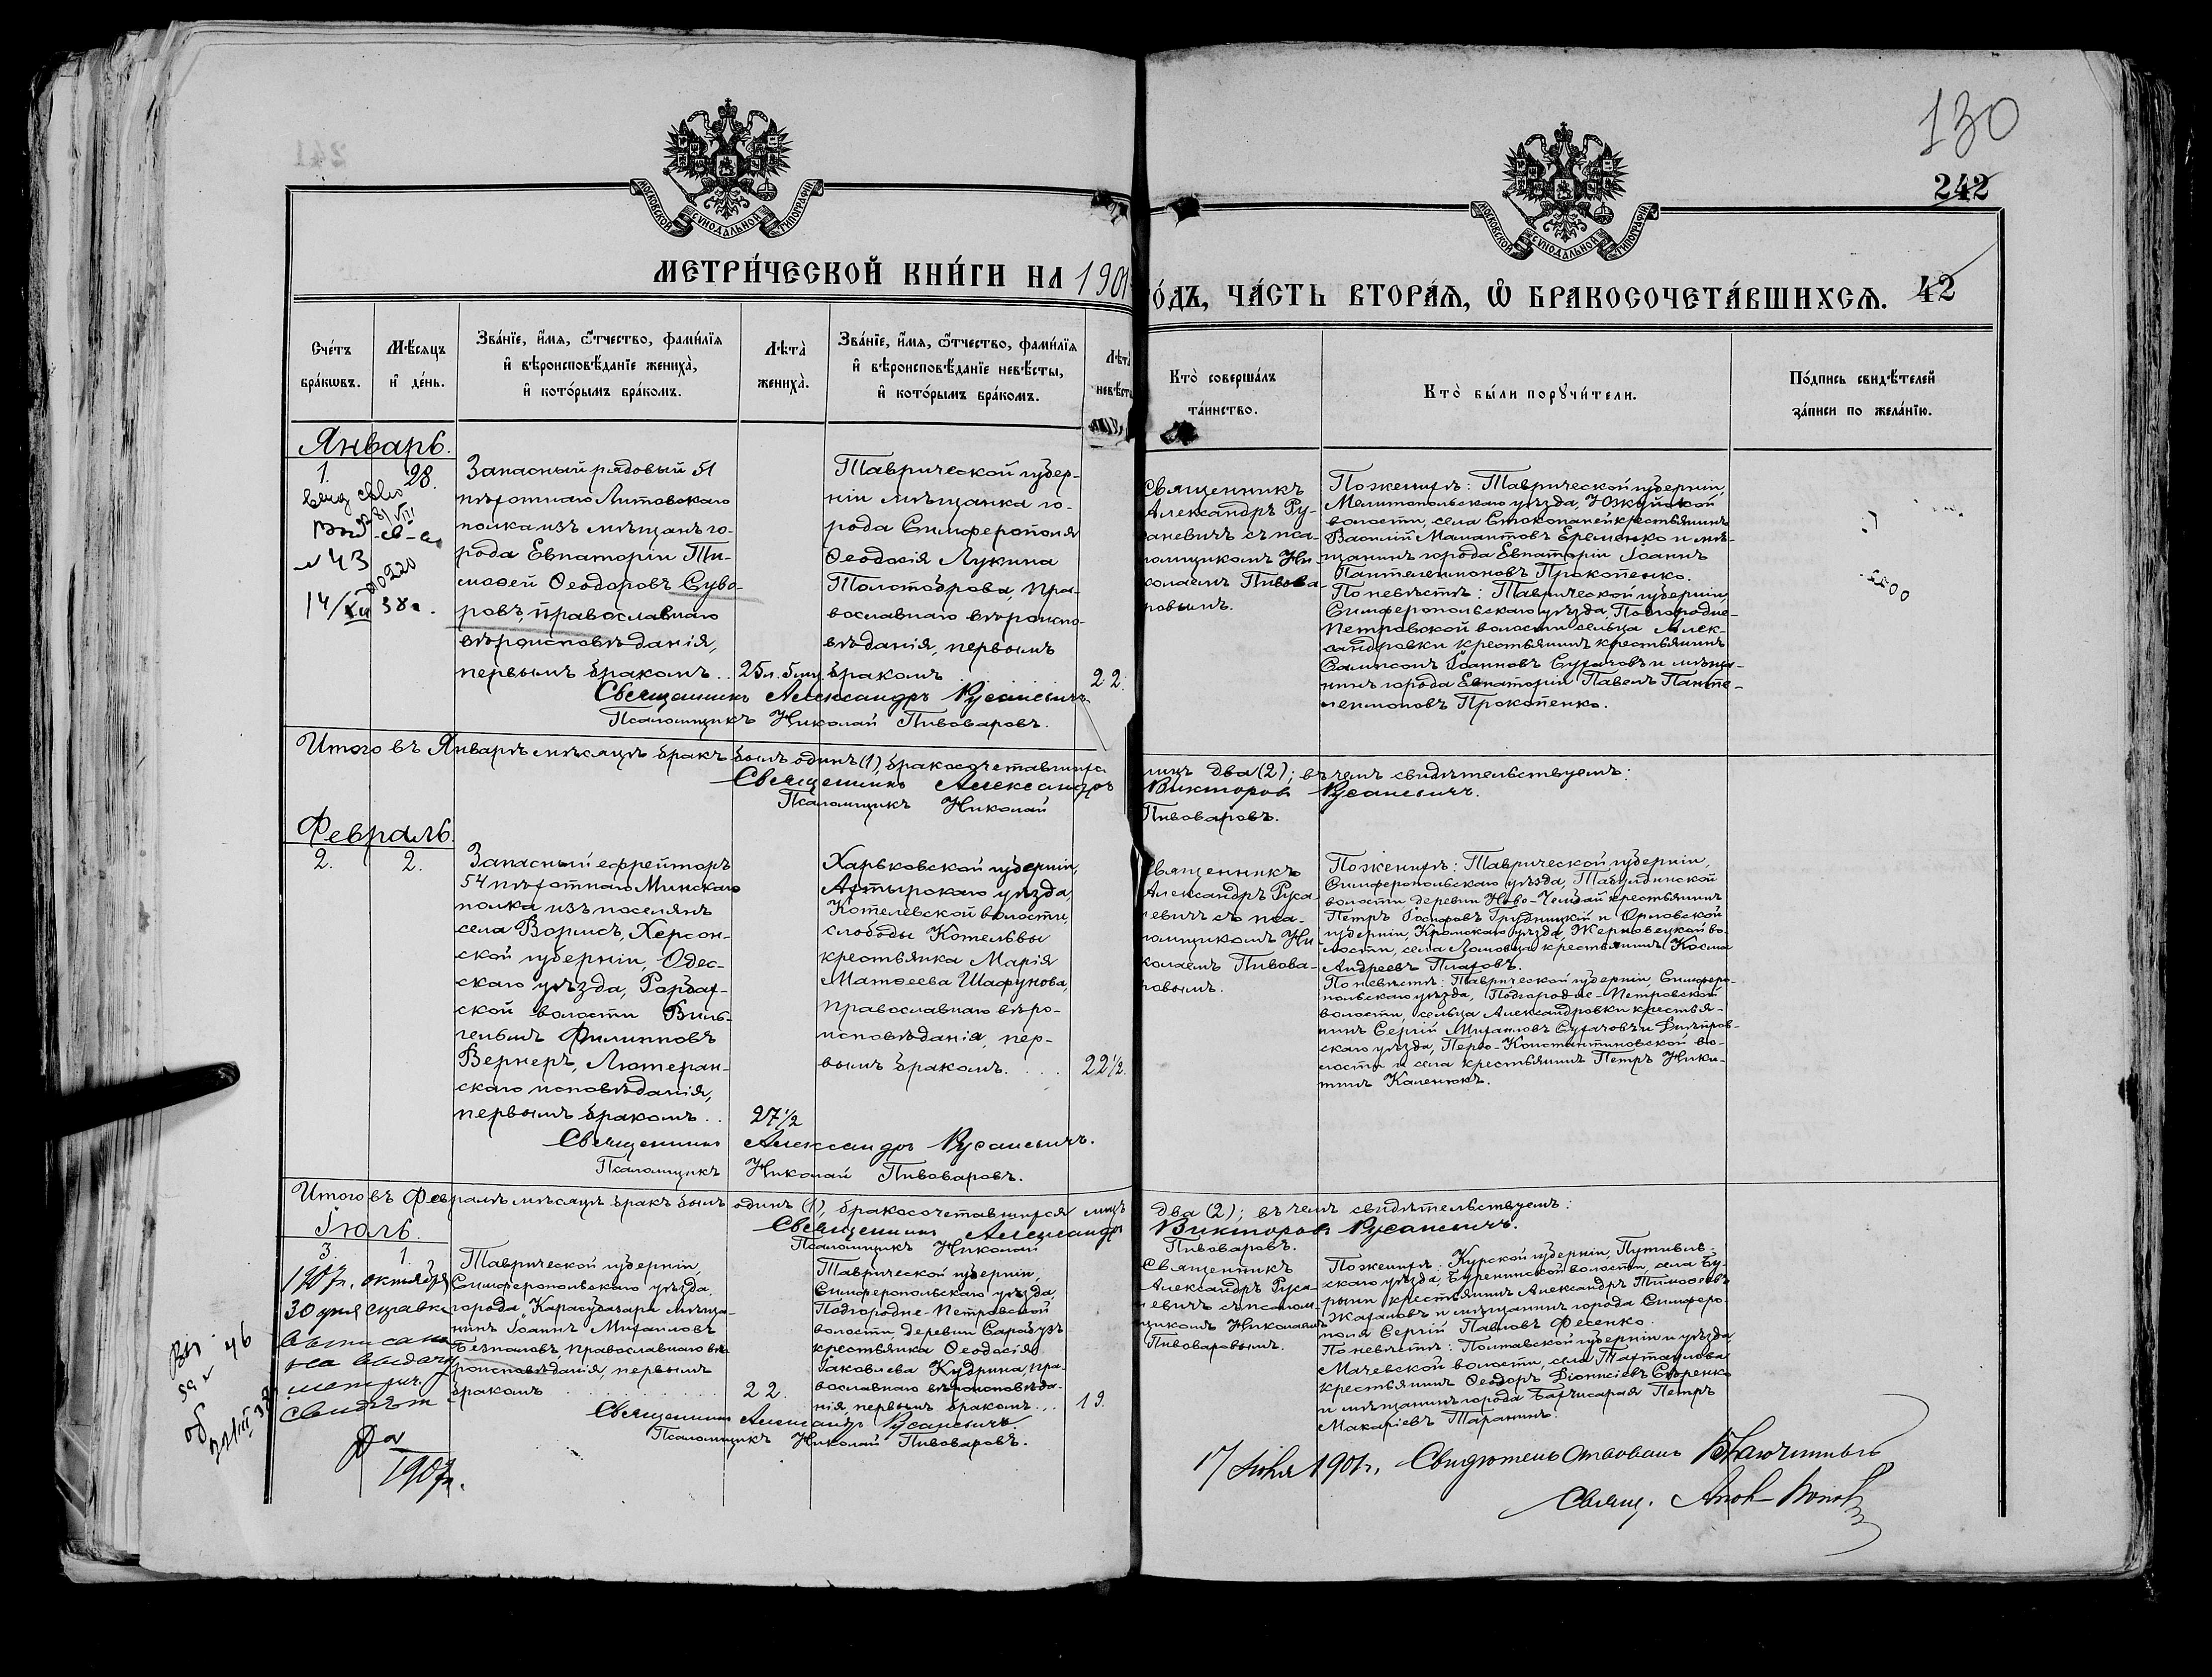 130
242
МОСКОВСКОЙ СУНОДАЛЬНОЙ ТИПОГРАФІИ
МОСКОВСКОЙ СУНОДАЛЬНОЙ ТИПОГРАФІИ
МЕТРИ́ЧЕСКОЙ КНИ́ГИ НА 1901
О́ДЪ, ЧА́СТЬ ВТОРА́Я, Ѡ҆ БРАКОСОЧЕТА́ВШИХСЯ. 42
Сче́тъ
бра́ковъ.
Мѣ́сяцъ
и҆ де́нь.
Зва́нїе, и҆́мя, ѻ҆́тчество, фами́лїя
и҆ вѣроисповѣ́данїе жениха̀,
и҆ кото́рымъ бра́комъ.
Лѣта̀
жениха̀.
Зва́нїе, и҆́мя, ѻ҆́тчество, фами́лїя
и҆ вѣроисповѣ́данїе невѣ́сты,
и҆ кото́рымъ бра́комъ.
Лѣта̀
невѣ́сты
Кто̀ соверша́лъ
та́инство.
Кто̀ бы́ли порꙋчи́тели.
По́дпись свидѣ́телей
за́писи по жела́нїю.
Январь.
1.
28.
№ 43
14/XII 38 г.
Запасный рядовый 51
пѣхотнаго Литовскаго
полка изъ мѣщанъ го-
рода Евпаторіи Ти-
моѳей Ѳеодоровъ Суво-
ровъ, православнаго
вѣроисповѣданія,
первымъ бракомъ..
25 л. 5 мц.
Таврической губер-
ніи мѣщанка го-
рода Симферополя
Ѳеодосія Лукина
Толстоброва, пра-
вославнаго вѣроиспо-
вѣданія, первымъ
бракомъ
22.
Священникъ
Александръ Ру-
саневичъ съ пса-
ломщикомъ Ни-
колаемъ Пивова-
ровымъ.
По женихѣ: Таврической губерніи,
Мелитопольскаго уѣзда, Юзкуйской
волости, села Стокопаней крестьянинъ
Василій Мамантовъ Еременко и мѣ-
щанинъ города Евпаторіи Іоаннъ
Пантелеимоновъ Прокопенко.
По невѣстѣ: Таврической губерніи,
Симферопольскаго уѣзда, Подгородне-
Петровской волости сельца Алек-
сандровки крестьянинъ крестьянинъ
Сампсонъ Іоанновъ Сухачовъ и мѣща-
нинъ города Евпаторіи Павелъ Панте-
леимоновъ Прокопенко.
Священникъ Александръ Русаневичъ
Псаломщикъ Николай Пивоваровъ.
Итого въ Январѣ мѣсяцѣ бракъ былъ одинъ (1), бракосочетавшихся
лицъ два (2); въ чемъ свидѣтельствуемъ:
Священникъ Александръ
Викторовъ Русаневичъ.
Псаломщикъ Николай
Пивоваровъ.
Февраль.
2.
2.
Запасный ефрейторъ
54 пѣхотнаго Минскаго
полка изъ поселянъ
села Вормсъ, Херсон-
ской губерніи, Одес-
скаго уѣзда, Рорбах-
ской волости Виль-
гельмъ Филипповъ
Вернеръ, Лютеран-
скаго исповѣданія,
первымъ бракомъ..
27 1/2
Харьковской губерніи,
Ахтырскаго уѣзда,
Котелевской волости,
слободы Котельвы
крестьянка Марія
Матѳеева Шафунова,
православнаго вѣро-
исповѣданія, пер-
вымъ бракомъ....
22 1/2.
Священникъ
Александръ Руса-
невичъ съ пса-
ломщикомъ Ни-
колаемъ Пивова-
ровымъ.
По женихѣ: Таврической губерніи,
Симферопольскаго уѣзда, Табулдинской
волости деревни Ново-Чемдай крестьянинъ
Петръ Грудницкій и Орловской
губерніи, Кромскаго уѣзда, Жерновецкой во-
лости, села Ломовца крестьянинъ Косма
Андреевъ Платовъ.
По невѣстѣ: Таврической губерніи, Симферо-
польскаго уѣзда, Подгородне-Петровской
волости, сельца Александровки крестья-
нинъ Сергій Михаиловъ Сухачовъ и Днѣпров-
скаго уѣзда, Перво-Константиновской во-
лости и села крестьянинъ Петръ Ники-
тинъ Каленюкъ.
Священникъ Александръ Русаневичъ.
Псаломщикъ Николай Пивоваровъ.
Итого въ Февралѣ мѣсяцѣ бракъ былъ одинъ (1), бракосочетавшихся лицъ
два (2); въ чемъ свидѣтельствуемъ:
Священникъ Александръ
Викторовъ Русаневичъ.
Псаломщикъ Николай
Пивоваровъ.
Іюль.
3.
1.
1907 г. октября
30 дня справка
выписана
на выдачу
метрич.
свидѣт
1907 г.
46
Таврической губерніи,
Симферопольскаго уѣзда,
города Карасубазара мѣща-
нинъ Іоаннъ Михаиловъ
Безпаловъ, православнаго вѣ-
роисповѣданія, первымъ
бракомъ
22.
Таврической губерніи,
Симферопольскаго уѣзда,
Подгородне-Петровской
волости, деревни Сарабузъ
крестьянка Ѳеодосія
Іаковлева Кудрина, пра-
вославнаго вѣроисповѣда-
нія, первымъ бракомъ...
19.
Священникъ
Александръ Руса-
невичъ съ псалом-
щикомъ Николаемъ
Пивоваровымъ.
По женихѣ: Курской губерніи, Путивль-
скаго уѣзда, Бурынинской волости, села Бу-
рыни крестьянинъ Александръ Тимоѳеевъ
Жаталовъ и мѣщанинъ города Симферо-
поля Сергій Павловъ Фесенко.
По невѣстѣ: Полтавской губерніи и уѣзда
Мачевской волости, села Тахтаулова
крестьянинъ Ѳеодоръ Діонисіевъ Сидренко
и мѣщанинъ города Бахчисарая Петръ
Макаріевъ Таранинъ.
Священникъ Александръ Русаневичъ
Псаломщикъ Николай Пивоваровъ.
17 1901 г. Свидѣтельствовалъ Благочинный
Свящ.